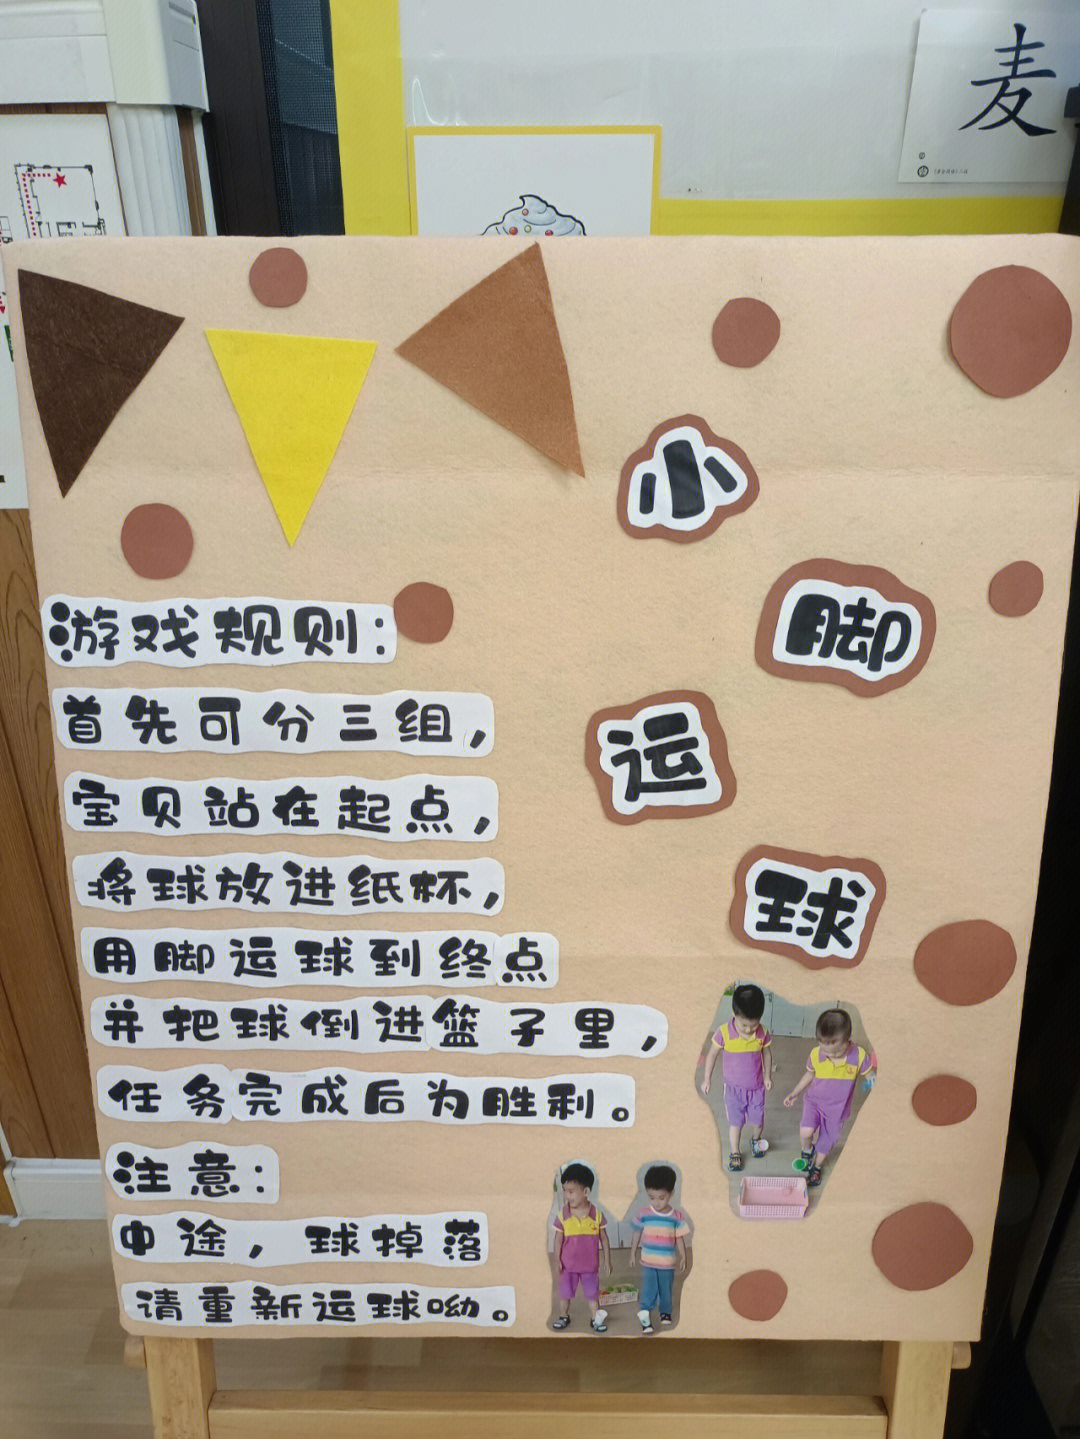 麦
小
脚
运
球
游戏规则：
首先可分三组，
宝贝站在起点，
将球放进纸杯，
用脚运球到终点
并把球倒进篮子里，
任务完成后为胜利。
注意：
中途，球掉落
请重新运球呦。